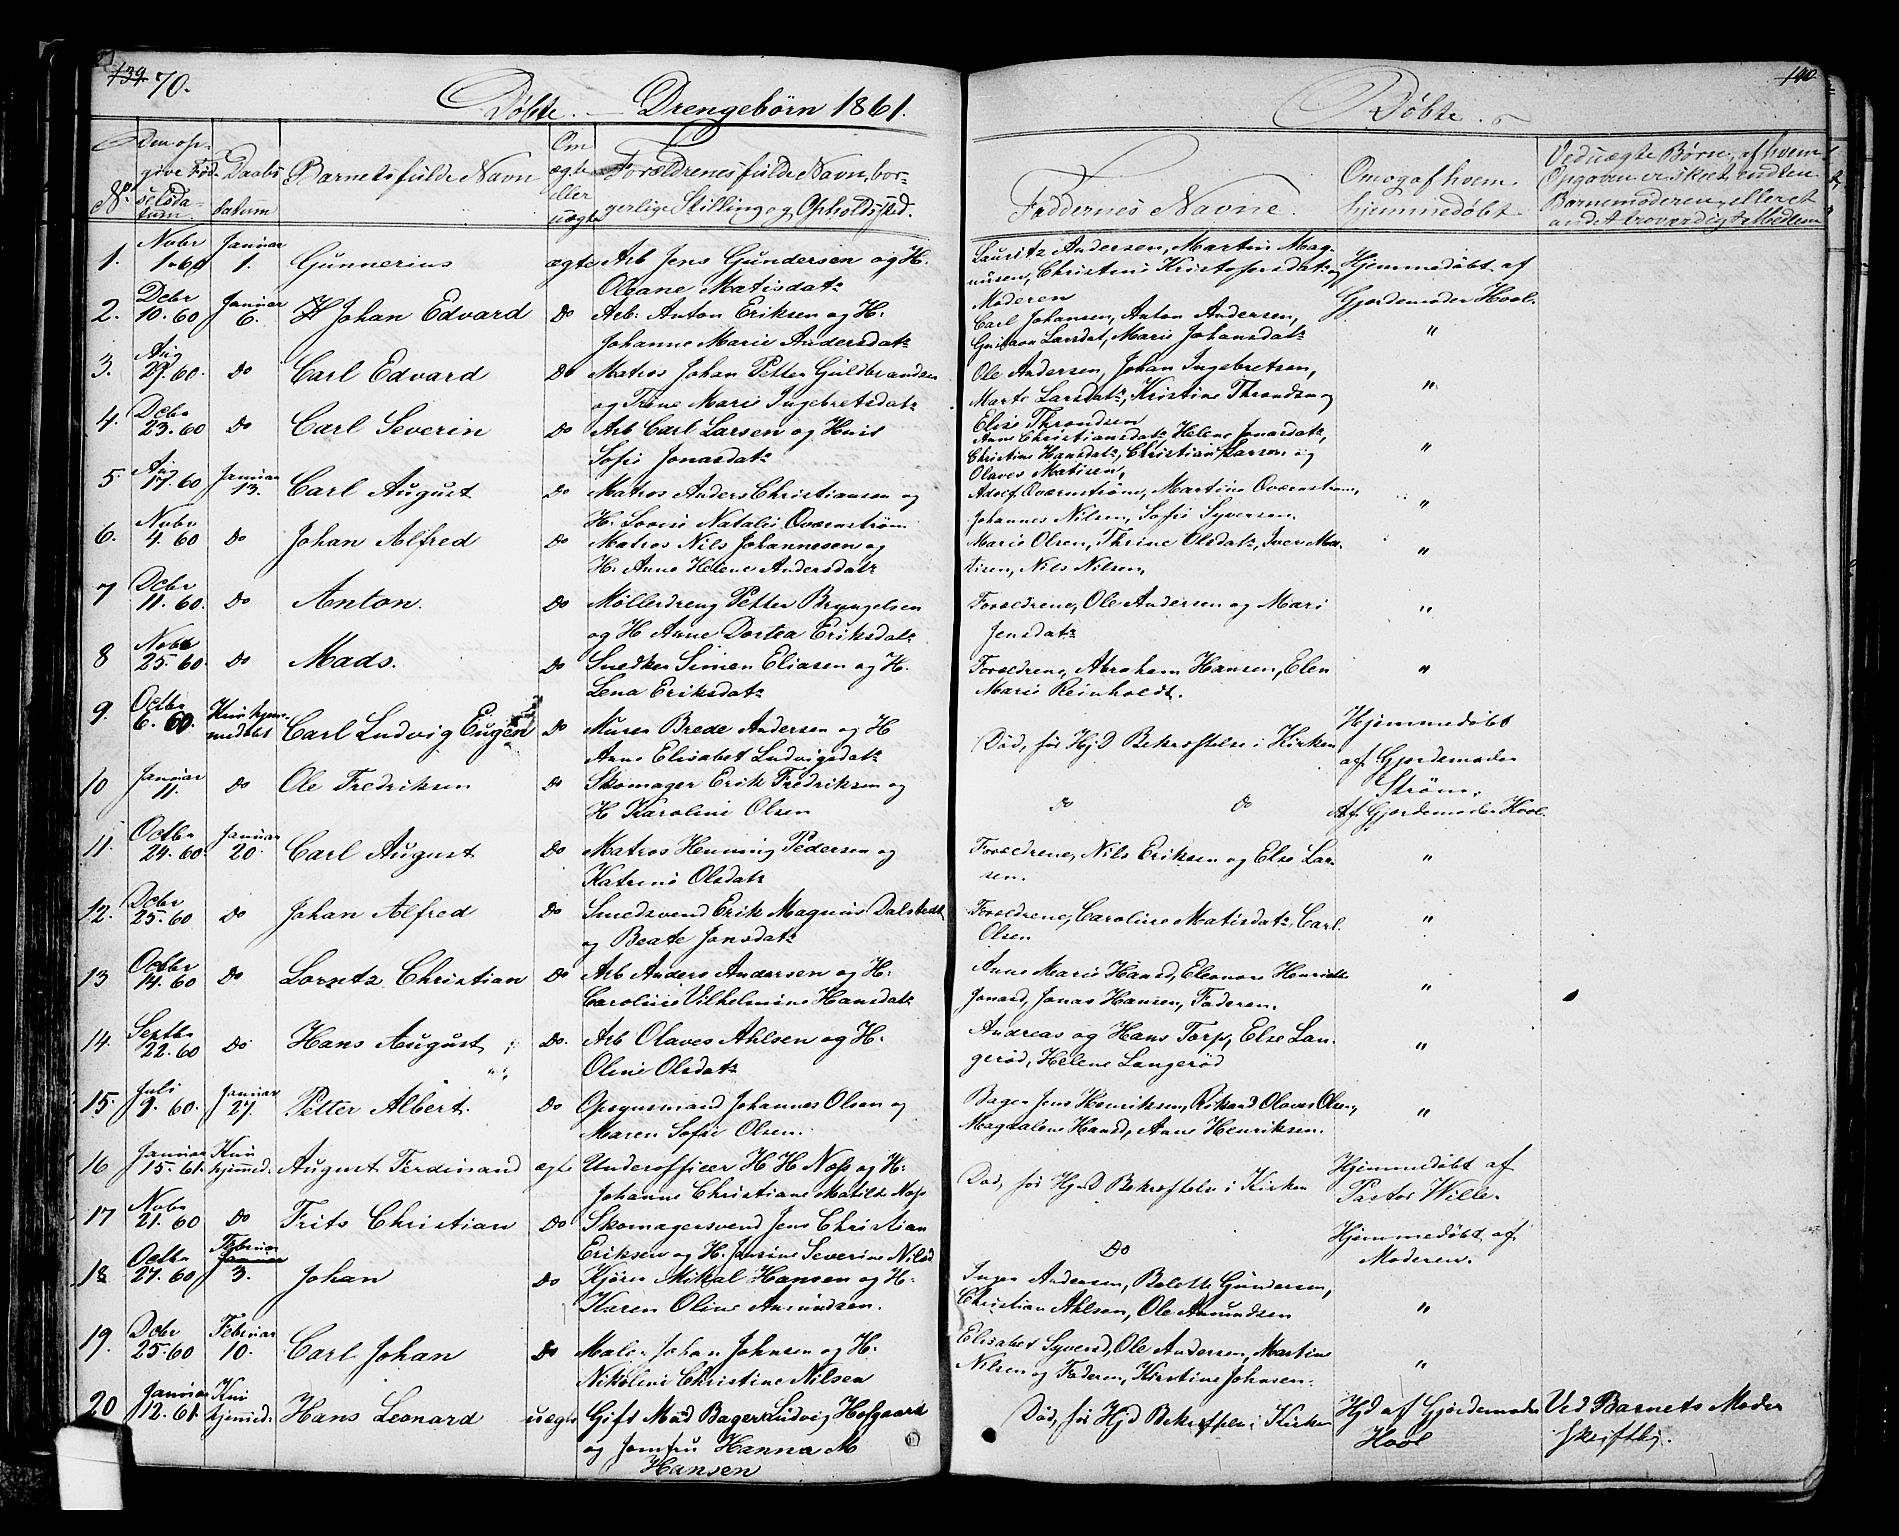 139 70.
Döbte. – Drengebörn 1861.
No.
Den opgivne Fødselsdatum
Daabsdatum
Barnets fulde Navn
Om ægte eller uægte
Forældrenes fulde Navn, borgerlige Stilling og Opholdssted.
1. Nobr 1. 60 Januar 1. Gunnerius ægte Arb Jens Gundersen og H.
Oleane Matisdatr
2. Dcbr 10. 60 Januar 6. Johan Edvard Do Arb. Anton Eriksen og H.
Johanne Marie Andersdatr
3. Aug 29. 60. Do Carl Edvard Do Matros Johan Petter Guldbrandsen
og Trine Marie Ingebretsdatr
4. Dcbr 23. 60 Do Carl Severin Do Arb Carl Larsen og Huus
Sofie Jonasdatr
5 Aug 17. 60 Januar 13. Carl August Do Matros Anders Christiansen og
H. Lovise Natalie Qværnstrøm
6. Nobr 4. 60 Do Johan Alfred Do Matros Nils Johannesen og
H. Anne Helene Andersdatr
7 Dcbr 11. 60. Do Anton. Do Møllerdreng Petter Bryngelsen
og H Anne Dortea Eriksdatr
8 Nobr 25. 60. Do Mads. Do Snedker Simen Eliasen og H.
Lena Eriksdatr
9. Octbr 6. 60. Kun hjemmedøbt Carl Ludvig Eugen Do Murer Brede Andersen og H
Anne Elisabet Ludvigsdatr
10 Januar 11. Do Ole Fredriksen Do Skomager Erik Fredriksen og
H Karoline Olsen
11. Octbr 24. 60. Januar 20. Carl August Do Matros Henning Pedersen og
Katrine Olsdatr
12. Dcbr 25. 60 Do Johan Alfred Do Smedsvend Erik Magnus Dalstedt
og Beate Jonsdatr
13 Octbr 14. 60 Do Lorntz Christian Do Arb Anders Andersen og H.
Caroline Vilhelmine Hansdatr
14. Septbr 22. 60 Do Hans August Do. Arb Olaves Ahlsen og H.
Oline Olsdatr
15. Juli 9. 60. Januar 27. Petter Albert. Do Opsynsmand Johannes Olsen og
Maren Sofie Olsen.
16 Januar 15. 61. Kun hjemmed. August Ferdinand ægte Underofficer H H Næss og H.
Johanne Christiane Matilde Næss
17 Nobr 21. 60 Do Frits Christian Do Skomagersvend Jens Christian
Eriksen og H. Jensine Severine Nilsd
18 Octbr 27. 60 Februar Januar 3. Johan Do Kjører Mikal Hansen og H.
Karen Oline Amundsen.
19. Dcbr 25. 60 Februar 10. Carl Johan Do Maler Johan Johnsen og H.
Nikoline Christine Nilsen
20 Januar 12. 61. Kun hjemmed. Hans Leonard uægte Gift Mad Bager Ludvig Hofgaard
og Jomfru Hanna M
Hansen
140
Döbte.
Faddernes Navne.
Om og af hvem hjemmedøbt
Ved uægte Børn, af hvem
Opgaven er skeet, enten
Barnemoderen, eller et
andet troværdigt Medlem
Lauritz Andersen, Martin Magnusen, Christine Kristofersdatr og
Moderen
Hjemmedøbt af
Gjordemoder Hool.
Carl Johansen, Anton Andersen,
Gustava Larsdat, Marie Johansdatr
"
Ole Andersen, Johan Ingebretsen,
Marte Larsdatr, Kristine Throndsen og
Elise Throndsen
"
Anne Christiansdatr, Helene Jonasdatr,
Christine Hansdatr, Christian Larsen og
Olaves Matisen,
"
Adolf Qværnstrøm, Martine Qværnstrøm,
Johannes Nilsen, Sofie Syversen.
"
Marie Olsen, Thrine Olsdatr, Iver Matisen, Nils Nilsen,
"
Forældrene, Ole Andersen og Mari
Jensdatr
"
Forældrene, Abraham Hansen, Elen
Marie Reinholdt.
"
Død, før Hjd Bekræftelse i Kirken
Hjemmedøbt
af Gjordemoder
Strøm.
Do Do
Af Gjordemoder Hool.
Forældrene, Nils Eriksen og Else Larsen.
"
Forældrene, Caroline Matisdatr, Carl
Olsen
"
Anne Marie Hansd, Eleonore Henriette
Jonasd, Jonas Hansen, Faderen.
"
Andreas og Hans Torp, Else Langerød, Helene Langerød
"
Bager Jens Henriksen, Rikard Olaves Olsen,
Magdalene Hansd, Anne Henriksen.
"
Død, før Hjmd Bekræftelse i Kirken
Hjemmedøbt af
Pastor Wille.
Do
Hjemmedøbt af
Moderen.
Inger Andersen, Bolette Gundersen,
Christian Ahlsen, Ole Amundsen
"
Elisabet Syversd, Ole Andersen, Martine
Nilsen og Faderen, Kirstine Johnsen.
"
Død, før Hjd Bekræftelse i Kirken
Hjd af Gjordemoder
Hool
Ved Barnets Moder
skriftlig.